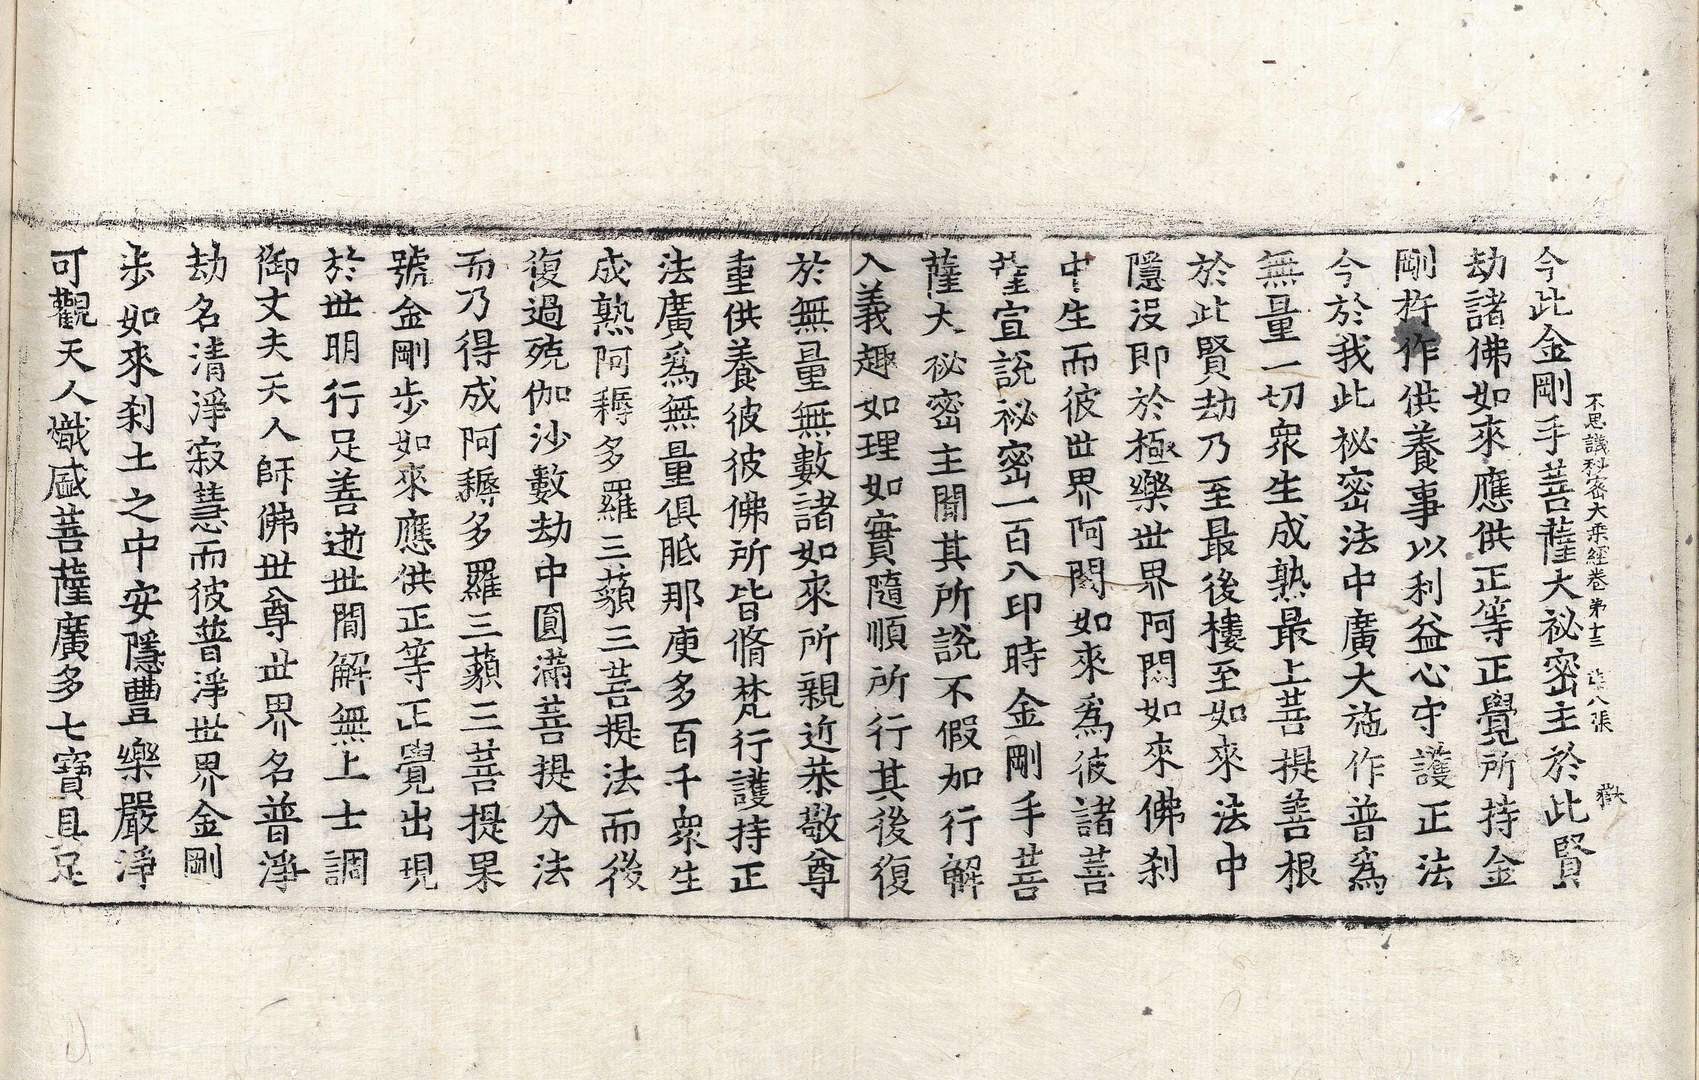 不思議秘密大乘經卷第十三 第八張 獻
今此金剛手菩薩大祕密主於此賢
劫諸佛如來應供正等正覺所持金
剛杵作供養事以利益心守護正法
今於我此祕密法中廣大施作普爲
無量一切衆生成熟最上菩提善根
於此賢劫乃至最後樓至如來法中
隱沒即於極樂世界阿閦如來佛刹
中生而彼世界阿閦如來爲彼諸菩
薩宣説祕密一百八印時金剛手菩
薩大祕密主聞其所説不假加行解
入義趣如理如實隨順所行其後復
於無量無數諸如來所親近恭敬尊
重供養彼彼佛所皆脩梵行護持正
法廣爲無量俱胝那庾多百千衆生
成熟阿耨多羅三藐三菩提法而後
復過殑伽沙數劫中圓滿菩提分法
而乃得成阿耨多羅三藐三菩提果
號金剛步如來應供正等正覺出現
於世明行足善逝世間解無上士調
御丈夫天人師佛世尊世界名普淨
劫名清淨寂慧而彼普淨世界金剛
步如來刹土之中安隱豐樂嚴淨
可觀天人熾盛菩薩廣多七寶具足